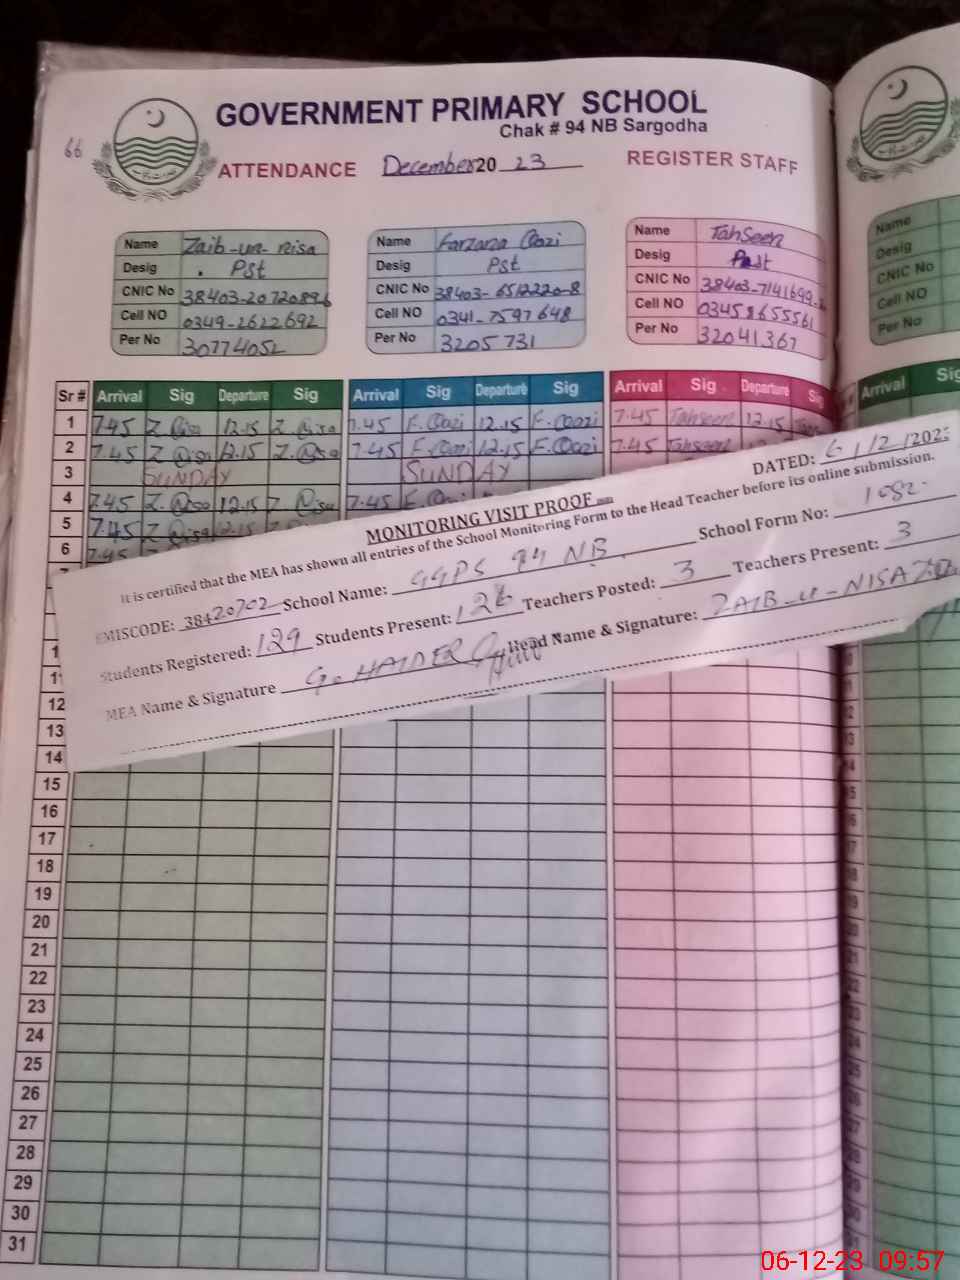 66
GOVERNMENT PRIMARY SCHOOL
Chak # 94 NB Sargodha
ATTENDANCE December 20 23 REGISTER STAFF
Name Zaib-un-nisa
Desig . Pst
CNIC No 38403-2072089-6
Cell NO 0349-2622692
Per No 30774052
Name Farzana Qazi
Desig Pst
CNIC No 38403-6512220-8
Cell NO 0341-7597648
Per No 3205731
Name TahSeen
Desig Pst
CNIC No 38403-7141699-
Cell NO 03458655561
Per No 32041367
Name
Desig
CNIC No
Cell NO
Per No
Sr # Arrival Sig Departure Sig Arrival Sig Departure Sig Arrival Sig Departure Sig Arrival Sig
1 7.45 Z. 12.15 Z. 7.45 F. Qazi 12.15 F. Qazi 7.45 Tahseen 12.15
2 7.45 Z. 12.15 Z. 7.45 F. Qazi 12.15 F. Qazi 7.45 Tahseen
3 SUNDAY SUNDAY
4 7.45 Z. 12.15 Z. 7.45 F.
5 7.45 Z. 12.15 Z.
6 7.45
MONITORING VISIT PROOF DATED: 6/12/202
It is certified that the MEA has shown all entries of the School Monitoring Form to the Head Teacher before its online submission.
EMISCODE: 38420702 School Name: GGPS 94 NB School Form No: 1082
Students Registered: 129 Students Present: 126 Teachers Posted: 3 Teachers Present: 3
MEA Name & Signature G. HAIDER Head Name & Signature: ZAIB-U-NISA
12
13
14
15
16
17
18
19
20
21
22
23
24
25
26
27
28
29
30
31
06-12-23 09:57